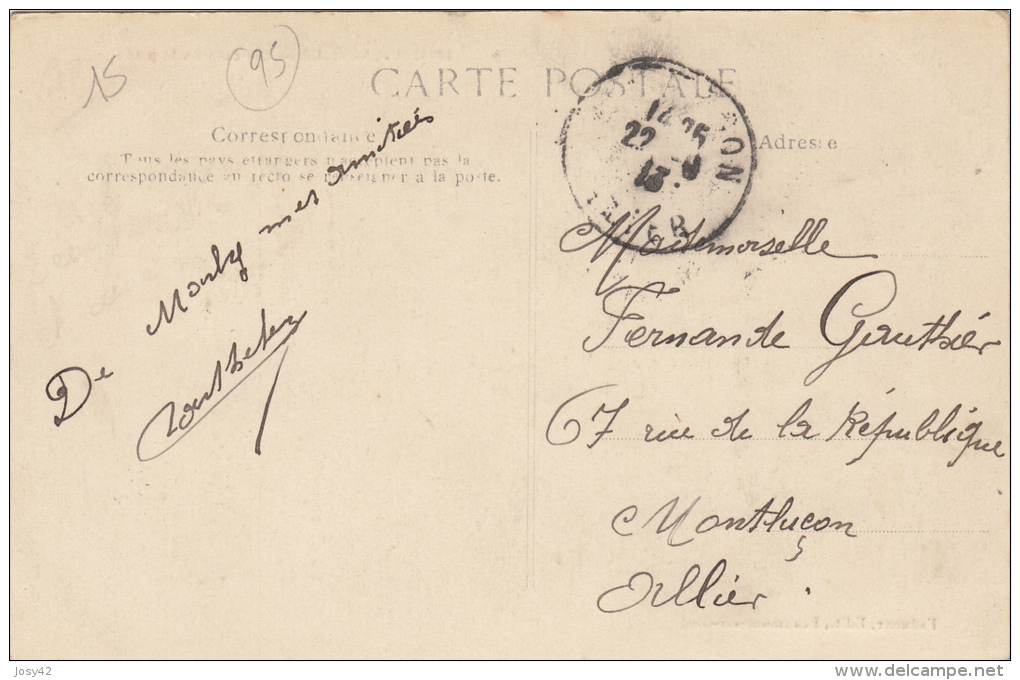 15
95
CARTE POSTALE
Correspondance
Tous les pays étrangers n'acceptent pas la
correspondance au recto se renseigner à la poste.
Adresse
De Marly mes amitiés
Mademoiselle
Fernande Gauthier
67 rue de la République
Montluçon
Allier.
22
josy42
www.delcampe.net